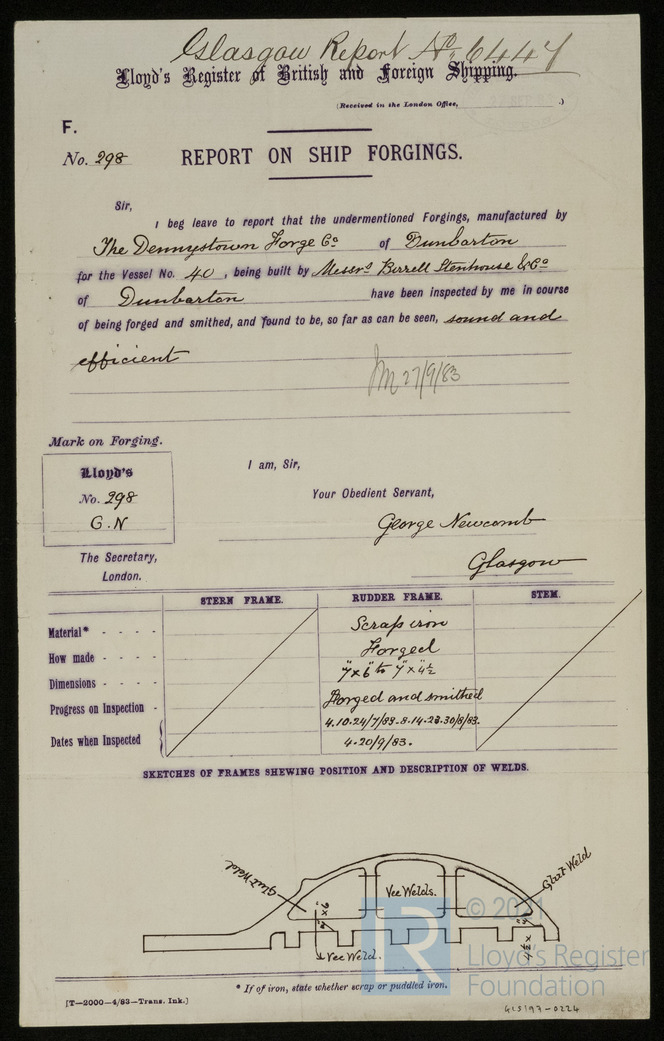 Glasgow Report No. 6447
Lloyd's Register of British and Foreign Shipping.
(Received in the London Office, .)
F.
No. 298 REPORT ON SHIP FORGINGS.
Sir,
I beg leave to report that the undermentioned Forgings, manufactured by
The Dennystown Forge Co of Dunbarton
for the Vessel No. 40, being built by Messrs Birrell Stenhouse & Co
of Dunbarton have been inspected by me in course
of being forged and smithed, and found to be, so far as can be seen, sound and
efficient
27/9/83
Mark on Forging.
Lloyd's
No. 298
G.N
I am, Sir,
Your Obedient Servant,
George Newcomb
Glasgow
The Secretary,
London.
STERN FRAME. RUDDER FRAME. STEM.
Material* - - - - Scrap iron
How made - - - - Forged
Dimensions - - - - 7"x6" to 7"x4½"
Progress on Inspection - Forged and smithed
4.10.24/7/83.8.14.23.30/8/83.
Dates when Inspected 4.20/9/83.
SKETCHES OF FRAMES SHEWING POSITION AND DESCRIPTION OF WELDS.
Glut Weld
Glut Weld
Vee Welds.
7" x 6"
4½ x 7"
Vee Weld.
© 2021
LR
Lloyd's Register
Foundation
* If of iron, state whether scrap or puddled iron.
[T—2000—4/83—Trans. Ink.]
GLS197-0224